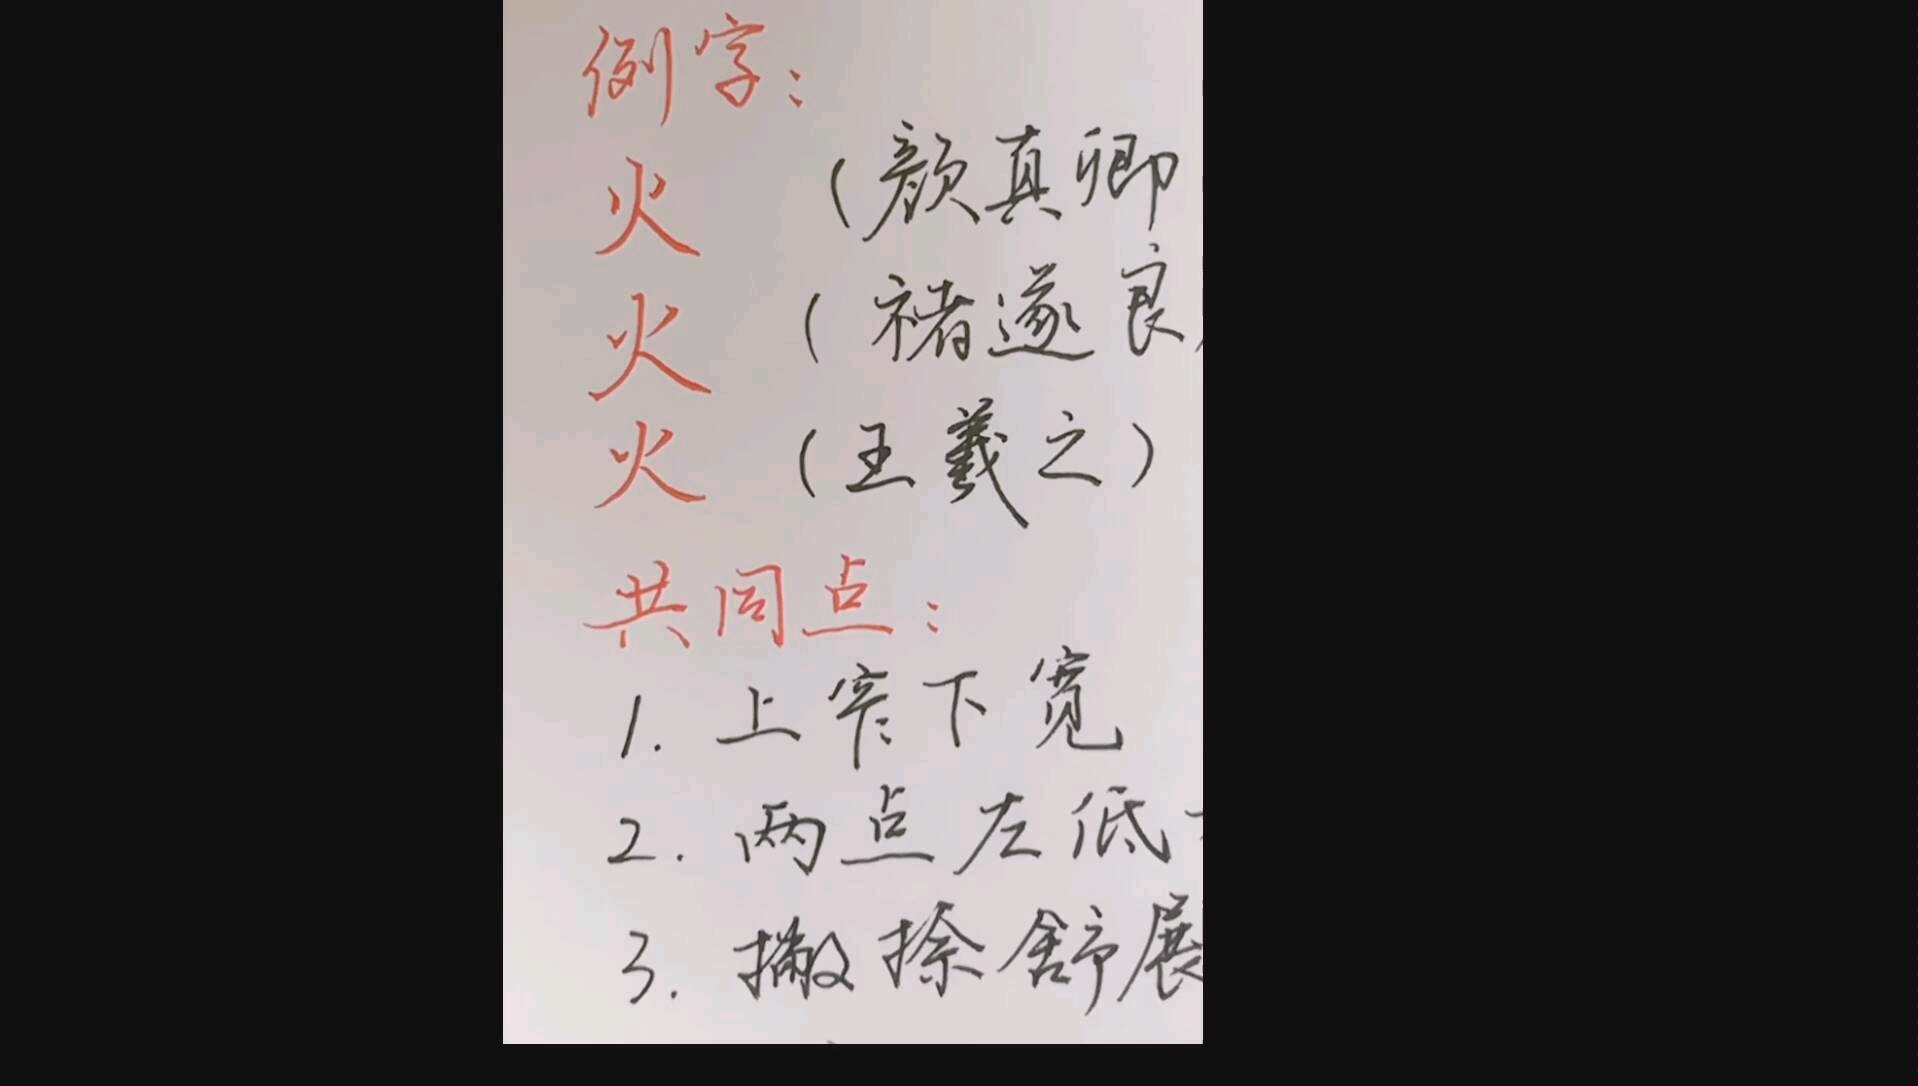 例字：
火 （颜真卿
火 （褚遂良
火 （王羲之）
共同点：
1. 上窄下宽
2. 两点左低
3. 撇捺舒展